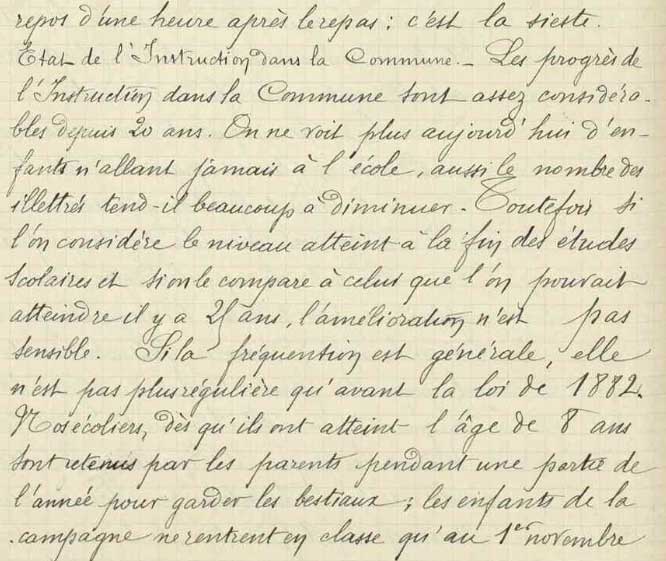 repos d'une heure après le repas : c'est la sieste.
Etat de l'Instruction dans la Commune. - Les progrès de
l'Instruction dans la Commune sont assez considéra-
bles depuis 20 ans. On ne voit plus aujourd'hui d'en-
fants n'allant jamais à l'école, aussi le nombre des
illettrés tend-il beaucoup à diminuer. Toutefois si
l'on considère le niveau atteint à la fin des études
scolaires et si on le compare à celui que l'on pouvait
atteindre il y a 25 ans, l'amélioration n'est pas
sensible. Si la fréquention est générale, elle
n'est pas plus régulière qu'avant la loi de 1882.
Nos écoliers, dès qu'ils ont atteint l'âge de 8 ans
sont retenus par les parents pendant une partie de
l'année pour garder les bestiaux ; les enfants de la
campagne ne rentrent en classe qu'au 1er novembre